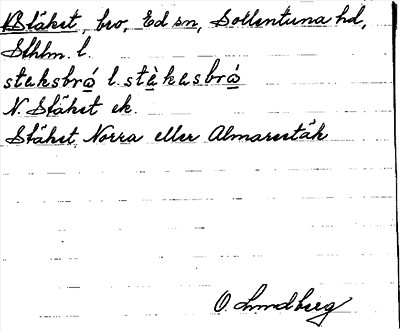 Stäket, bro, Ed sn, Sollentuna hd,
Sthlm. l.
stäksbró l. stäkasbró
N. Stäket ek.
Stäket, Norra eller Almarestäk
O. Lundberg